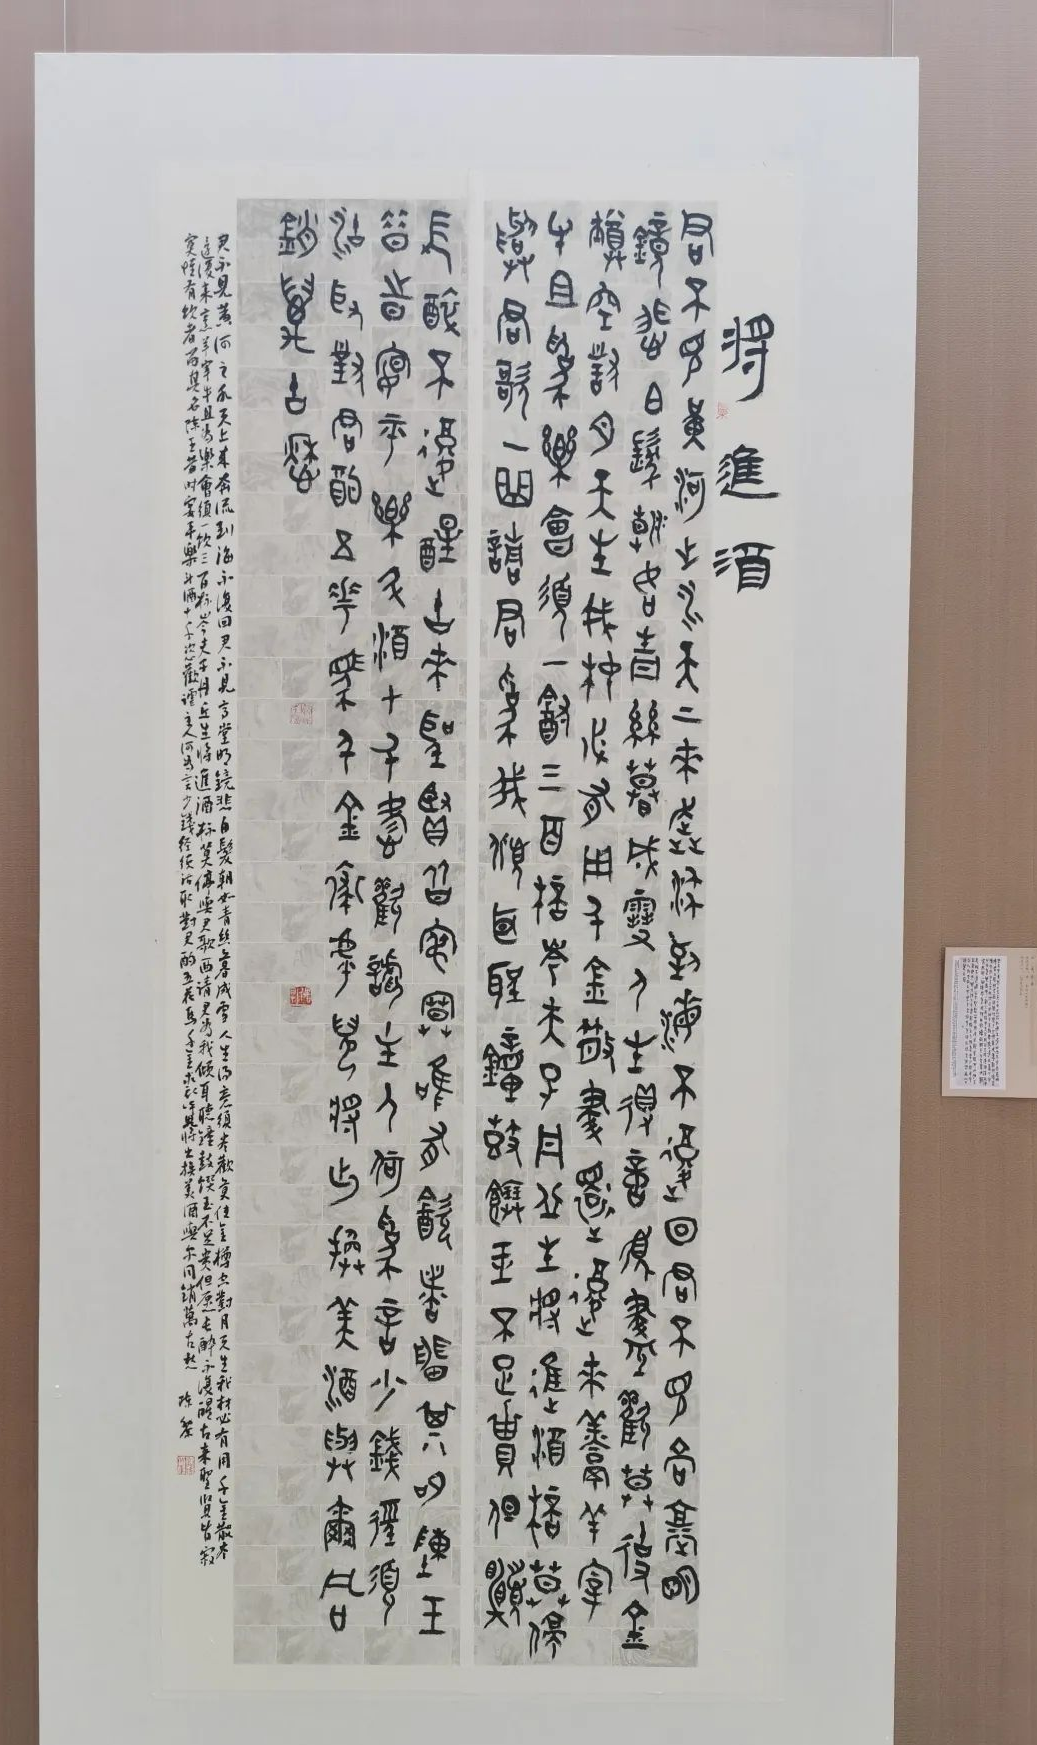 將進酒
君不見黃河之水天上來奔流到海不復回君不見高堂明
鏡悲白髮朝如青絲暮成雪人生得意須盡歡莫使金
樽空對月天生我材必有用千金散盡還復來烹羊宰
牛且為樂會須一飲三百杯岑夫子丹丘生將進酒杯莫停
與君歌一曲請君為我傾耳聽鐘鼓饌玉不足貴但願
長醉不復醒古來聖賢皆寂寞唯有飲者留其名陳王
昔時宴平樂斗酒十千恣歡謔主人何為言少錢徑須
沽取對君酌五花馬千金裘呼兒將出換美酒與爾同
銷萬古愁
君不見黃河之水天上來奔流到海不復回君不見高堂明鏡悲白髮朝如青絲暮成雪人生得意須盡歡莫使金樽空對月天生我材必有用千金散盡
還復來烹羊宰牛且為樂會須一飲三百杯岑夫子丹丘生將進酒杯莫停與君歌一曲請君為我傾耳聽鐘鼓饌玉不足貴但願長醉不復醒古來聖賢皆寂
寞惟有飲者留其名陳王昔時宴平樂斗酒十千恣歡謔主人何為言少錢徑須沽取對君酌五花馬千金裘呼兒將出換美酒與爾同銷萬古愁